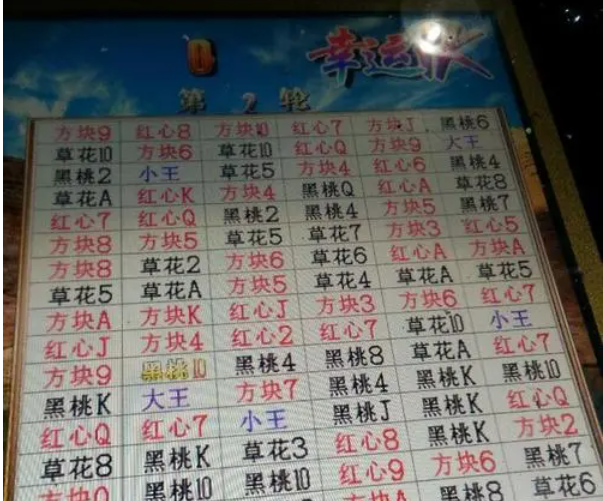 幸运
第2轮
方块9 红心8 方块10 红心7 方块J 黑桃6
草花10 方块6 草花10 红心Q 方块9 大王
黑桃2 小王 草花5 方块4 红心6 黑桃4
草花A 红心K 方块4 黑桃Q 红心A 草花8
红心7 红心Q 黑桃2 黑桃4 方块5 黑桃7
方块8 方块5 草花5 草花7 方块3 红心5
方块8 草花2 方块6 草花6 红心A 方块A
草花5 草花A 方块5 草花4 草花A 草花5
方块A 方块K 红心J 方块3 方块6 红心7
红心J 方块4 红心2 红心7 草花10 小王
方块9 黑桃10 黑桃4 黑桃8 草花A 红心7
黑桃K 大王 方块7 黑桃4 黑桃K 黑桃10
红心Q 红心7 小王 黑桃J 黑桃K 红心Q
草花8 黑桃K 草花3 红心8 黑桃K 方块2
方块Q 黑桃10 黑桃10 红心9 方块6 黑桃7
方块A 黑桃8 草花6